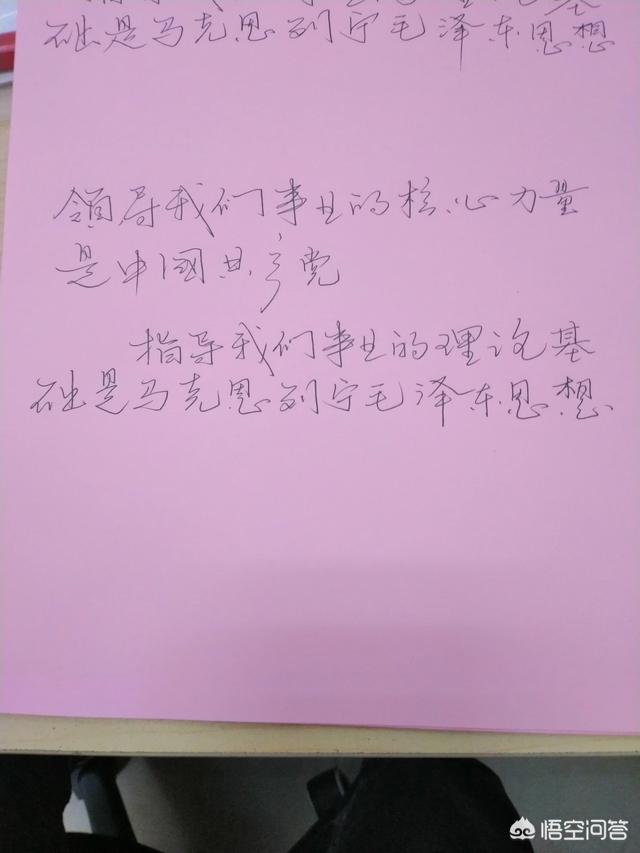 础是马克思列宁毛泽东思想
領导我们事业的核心力量
是中國共产党
指导我们事业的理论基
础是马克思列宁毛泽东思想
悟空问答